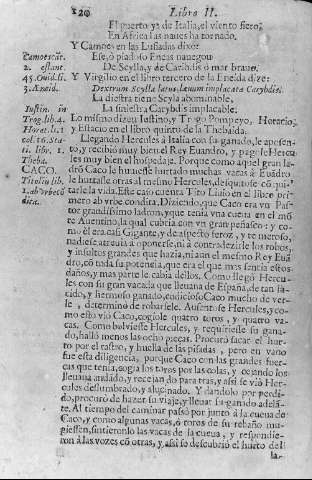 120 Libro II.
El puerto ya de Italia, el viento fiero,
En Africa las naues ha tornado.
Y Camoes en las Lusiadas dixo:
Camoes cãt. 2. estanc. 45.
Ese, o piadoso Eneas nauegou
De Scylla, y de Caribdis o mar brauo.
Ouid. li. 3. Æneid.
Y Virgilio en el libro tercero de la Eneida dize:
Dextrum Scylla latus, læuum implacata Carybdis.
La diestra tiene Scyla abominable,
La siniestra Carybdis implacable.
Iustin. in Trog. lib. 4. Horat. li. 1 Stati. libr. 1. Theba.
Lo mismo dizen Iustino, y Trogo Pompeyo, Horacio,
y Estacio en el libro quinto de la Thebaida.
Llegando Hercules à Italia con su ganado, le aposento,
y recibio muy bien el Rey Euandro, y pagole Hercules
muy bien el hospedaje. Porque como aquel gran ladrõ
CACO.
Caco le huuiesse hurtado muchas vacas à Euãdro
Tito liu. lib. 1. ab vrbe cõdita.
le hurtasse otras al mesmo Hercules, de suerte que le costò quitarle
la vida. Este caso cuenta Tito Liuio en el libro primero
ab vrbe condita. Diziendo, que Caco era vn Pastor
grandissimo ladron, y que tenia vna cueua en el mõte
Auentino, la qual cubria con vn gran peñasco: y como
èl era casi Gigante, y de aspecto feroz, y temeroso,
nadie se atreuia a oponerse, ni à contradezirle los robos,
y insultos grandes que hazia, ni aun el mesmo Rey Euãdro,
cõ toda su potencia, que era el que mas sentia estos
daños, y mas parte le cabia dellos. Como llegò Hercules
con su gran vacada que lleuaua de España, de tan lucido,
y hermoso ganado, codicioso Caco mucho de verle
, determinò de robarsele. Ausentose Hercules, y como
esto viò Caco, cogiole quatro toros, y quatro vacas.
Como boluiesse Hercules, y requiriesse su ganado,
hallò menos las ocho pieças. Procurò sacar el hurto
por el rastro, y huella de las pisadas, pero en vano
fue esta diligencia, porque Caco con las grandes fuerças
que tenia, cogia los toros por las colas, y cejando los
lleuaua arredro, y recejando para tras, y assi se viò Hercules
deslumbrado, y alucinado. Y dandolo por perdido,
procurò de hazer su viaje, y lleuar su ganado adelãte.
Al tiempo del caminar passò por junto à la cueua de
Caco, y como algunas vacas, ò toros de su rebaño mugiessen,
sintieronlo las vacas de la cueua, y respondieron
à las vozes cõ otras, y assi se descubriò el hurto del
la-